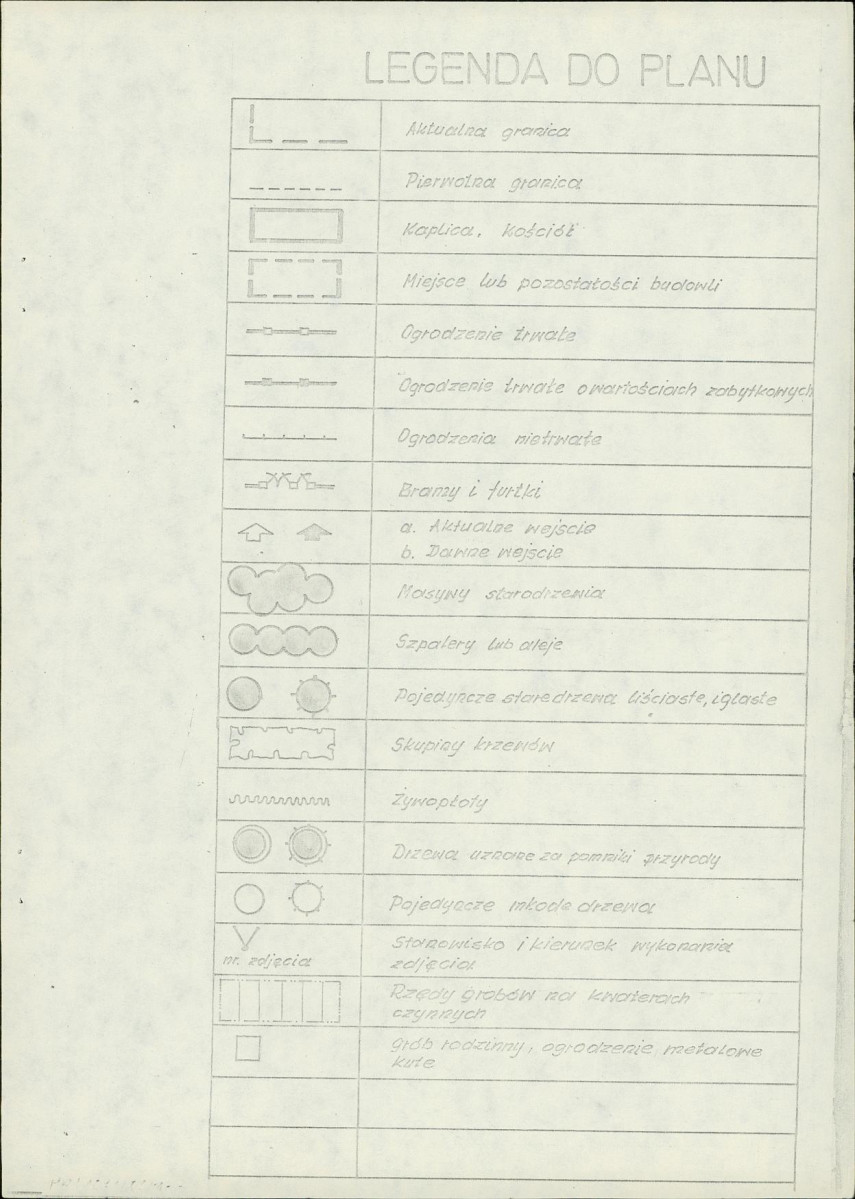 LEGENDA DO PLANU
Aktualna granica
Pierwotna granica
Kaplica, kościół
Miejsce lub pozostałości budowli
Ogrodzenie trwałe
Ogrodzenie trwałe o wartościach zabytkowych
Ogrodzenia nietrwałe
Bramy i furtki
a. Aktualne wejście
b. Dawne wejście
Masywy starodrzewia
Szpalery lub aleje
Pojedyncze stare drzewa liściaste, iglaste
Skupiny krzewów
Żywopłoty
Drzewa uznane za pomniki przyrody
Pojedyncze młode drzewa
nr. zdjęcia
Stanowisko i kierunek wykonania
zdjęcia
Rzędy grobów na kwaterach
czynnych
grób rodzinny, ogrodzenie metalowe
kute